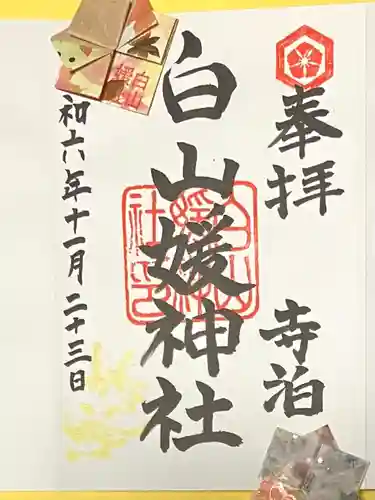 奉拝
寺泊
白山媛神社
和六年十一月二十三日
白山
媛